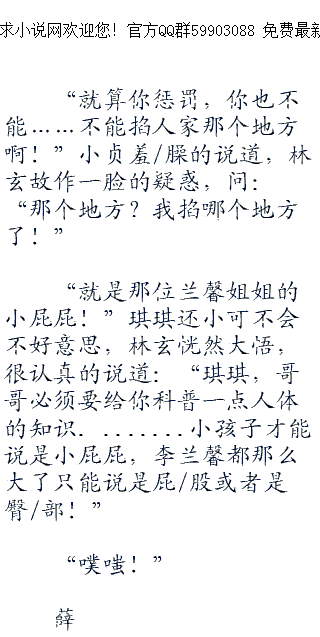 求小说网欢迎您！官方QQ群59903088 免费最新
“就算你惩罚，你也不
能……不能掐人家那个地方
啊！”小贞羞/臊的说道，林
玄故作一脸的疑惑，问：
“那个地方？我掐哪个地方
了！”
“就是那位兰馨姐姐的
小屁屁！”琪琪还小可不会
不好意思，林玄恍然大悟，
很认真的说道：“琪琪，哥
哥必须要给你科普一点人体
的知识．.......小孩子才能
说是小屁屁，李兰馨都那么
大了只能说是屁/股或者是
臀/部！”
“噗嗤！”
薛